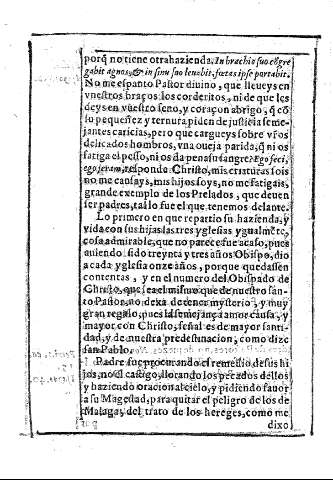 porq̃ no tiene otra hazienda. In brachio suo cõgre
gabit agnos, & in sinu suo leuabit, fœtas ipse portabit.
No me espanto Pastor diuino, que lleueys en
vuestros braços los corderitos, ni de que les
deys en vuestro seno, y coraçon abrigo, q̃ cõ
lo pequeñez y ternura piden de justicia seme-
jantes caricias, pero que cargueys sobre vr̃os
delicados hombros, vna oueja parida, q̃ ni os
fatiga el peso, ni os da pena su sangre? Ego feci,
ego feram, responde Christo, mis criaturas sois
no me cansays, mis hijos soys, no me fatigais,
grande exemplo de los Prelados, que deuen
ser padres, tal o fue el que tenemos delante.
Lo primero en que repartio su hazienda, y
vida con sus hijas las tres yglesias ygualmẽte,
cosa admirable, que no parece fue acaso, pues
auiendo sido treynta y tres años Obispo, dio
a cada yglesia onze años, porque quedassen
contentas, y en el numero del Obispado de
Christo, que fue el mismo que de nuestro san-
to Pastor, no dexa de tener mysterio, y muy
gran regalo, pues la semejança amor causa, y
mayor con Christo, señal es de mayor santi-
dad, y de nuestra predestinacion, como dize
san Pablo.
Padre fue procurando el remedio de sus hi
jos, no el castigo, llorando los pecados dellos
y haziendo oracion al cielo, y pidiendo fauor
a su Magestad, para quitar el peligro de los de
Malaga, del trato de los hereges, como me
dixo